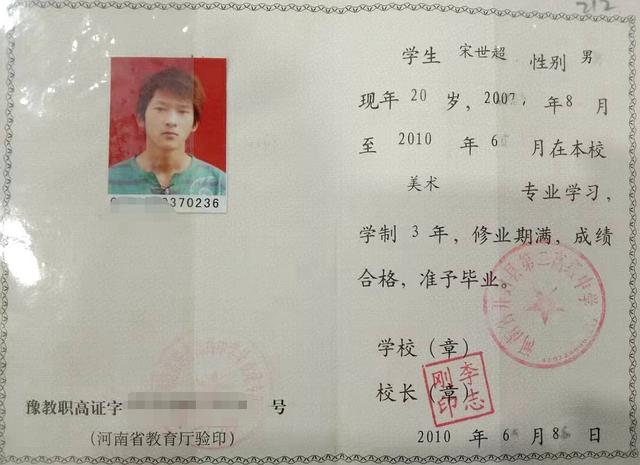 212
学生 宋世超 性别 男
现年 20 岁，2007 年 8 月
至 2010 年 6 月在本校
美术 专业学习，
学制 3 年，修业期满，成绩
合格，准予毕业。
370236
第二高级中学
学校（章）
校长（章）
李志刚印
豫教职高证字 号
（河南省教育厅验印）
2010 年 6 月 8 日